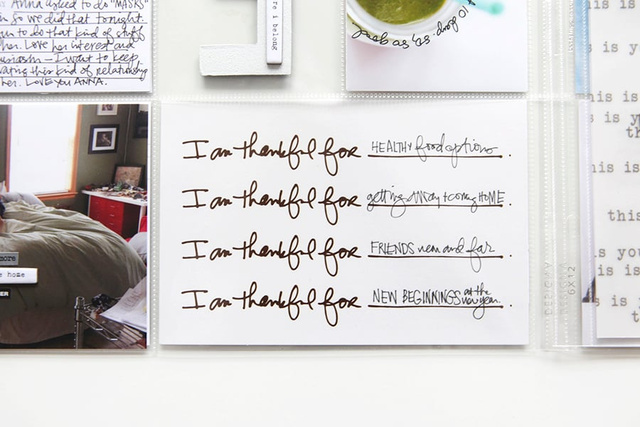 Anna asked to do "MASKS"
so we did that tonight.
to do that kind of stuff
her. Love her interest and
I want to keep
this kind of relationship
her. Love you ANNA.
I am thankful for HEALTHY food options.
I am thankful for getting away + coming HOME.
I am thankful for FRIENDS near and far.
I am thankful for NEW BEGINNINGS at the new year.
more
home
6X12
his is
is is yo
his is
is is y
th
his is
this
s is you
is is
s is